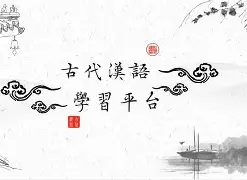 古代漢語
學習平台